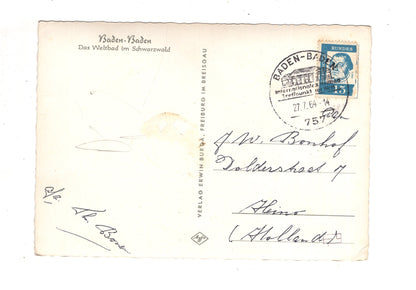 Baden-Baden
Das Weltbad im Schwarzwald
VERLAG ERWIN BURDA, FREIBURG IM BREISGAU
Agfa
BADEN-BADEN
internationaler
Treffpunkt
27.7.64-14
757
BUNDES
15
J. W. Bonhof
Dolderstraat 7
Heino
(Holland)
Th. Bon